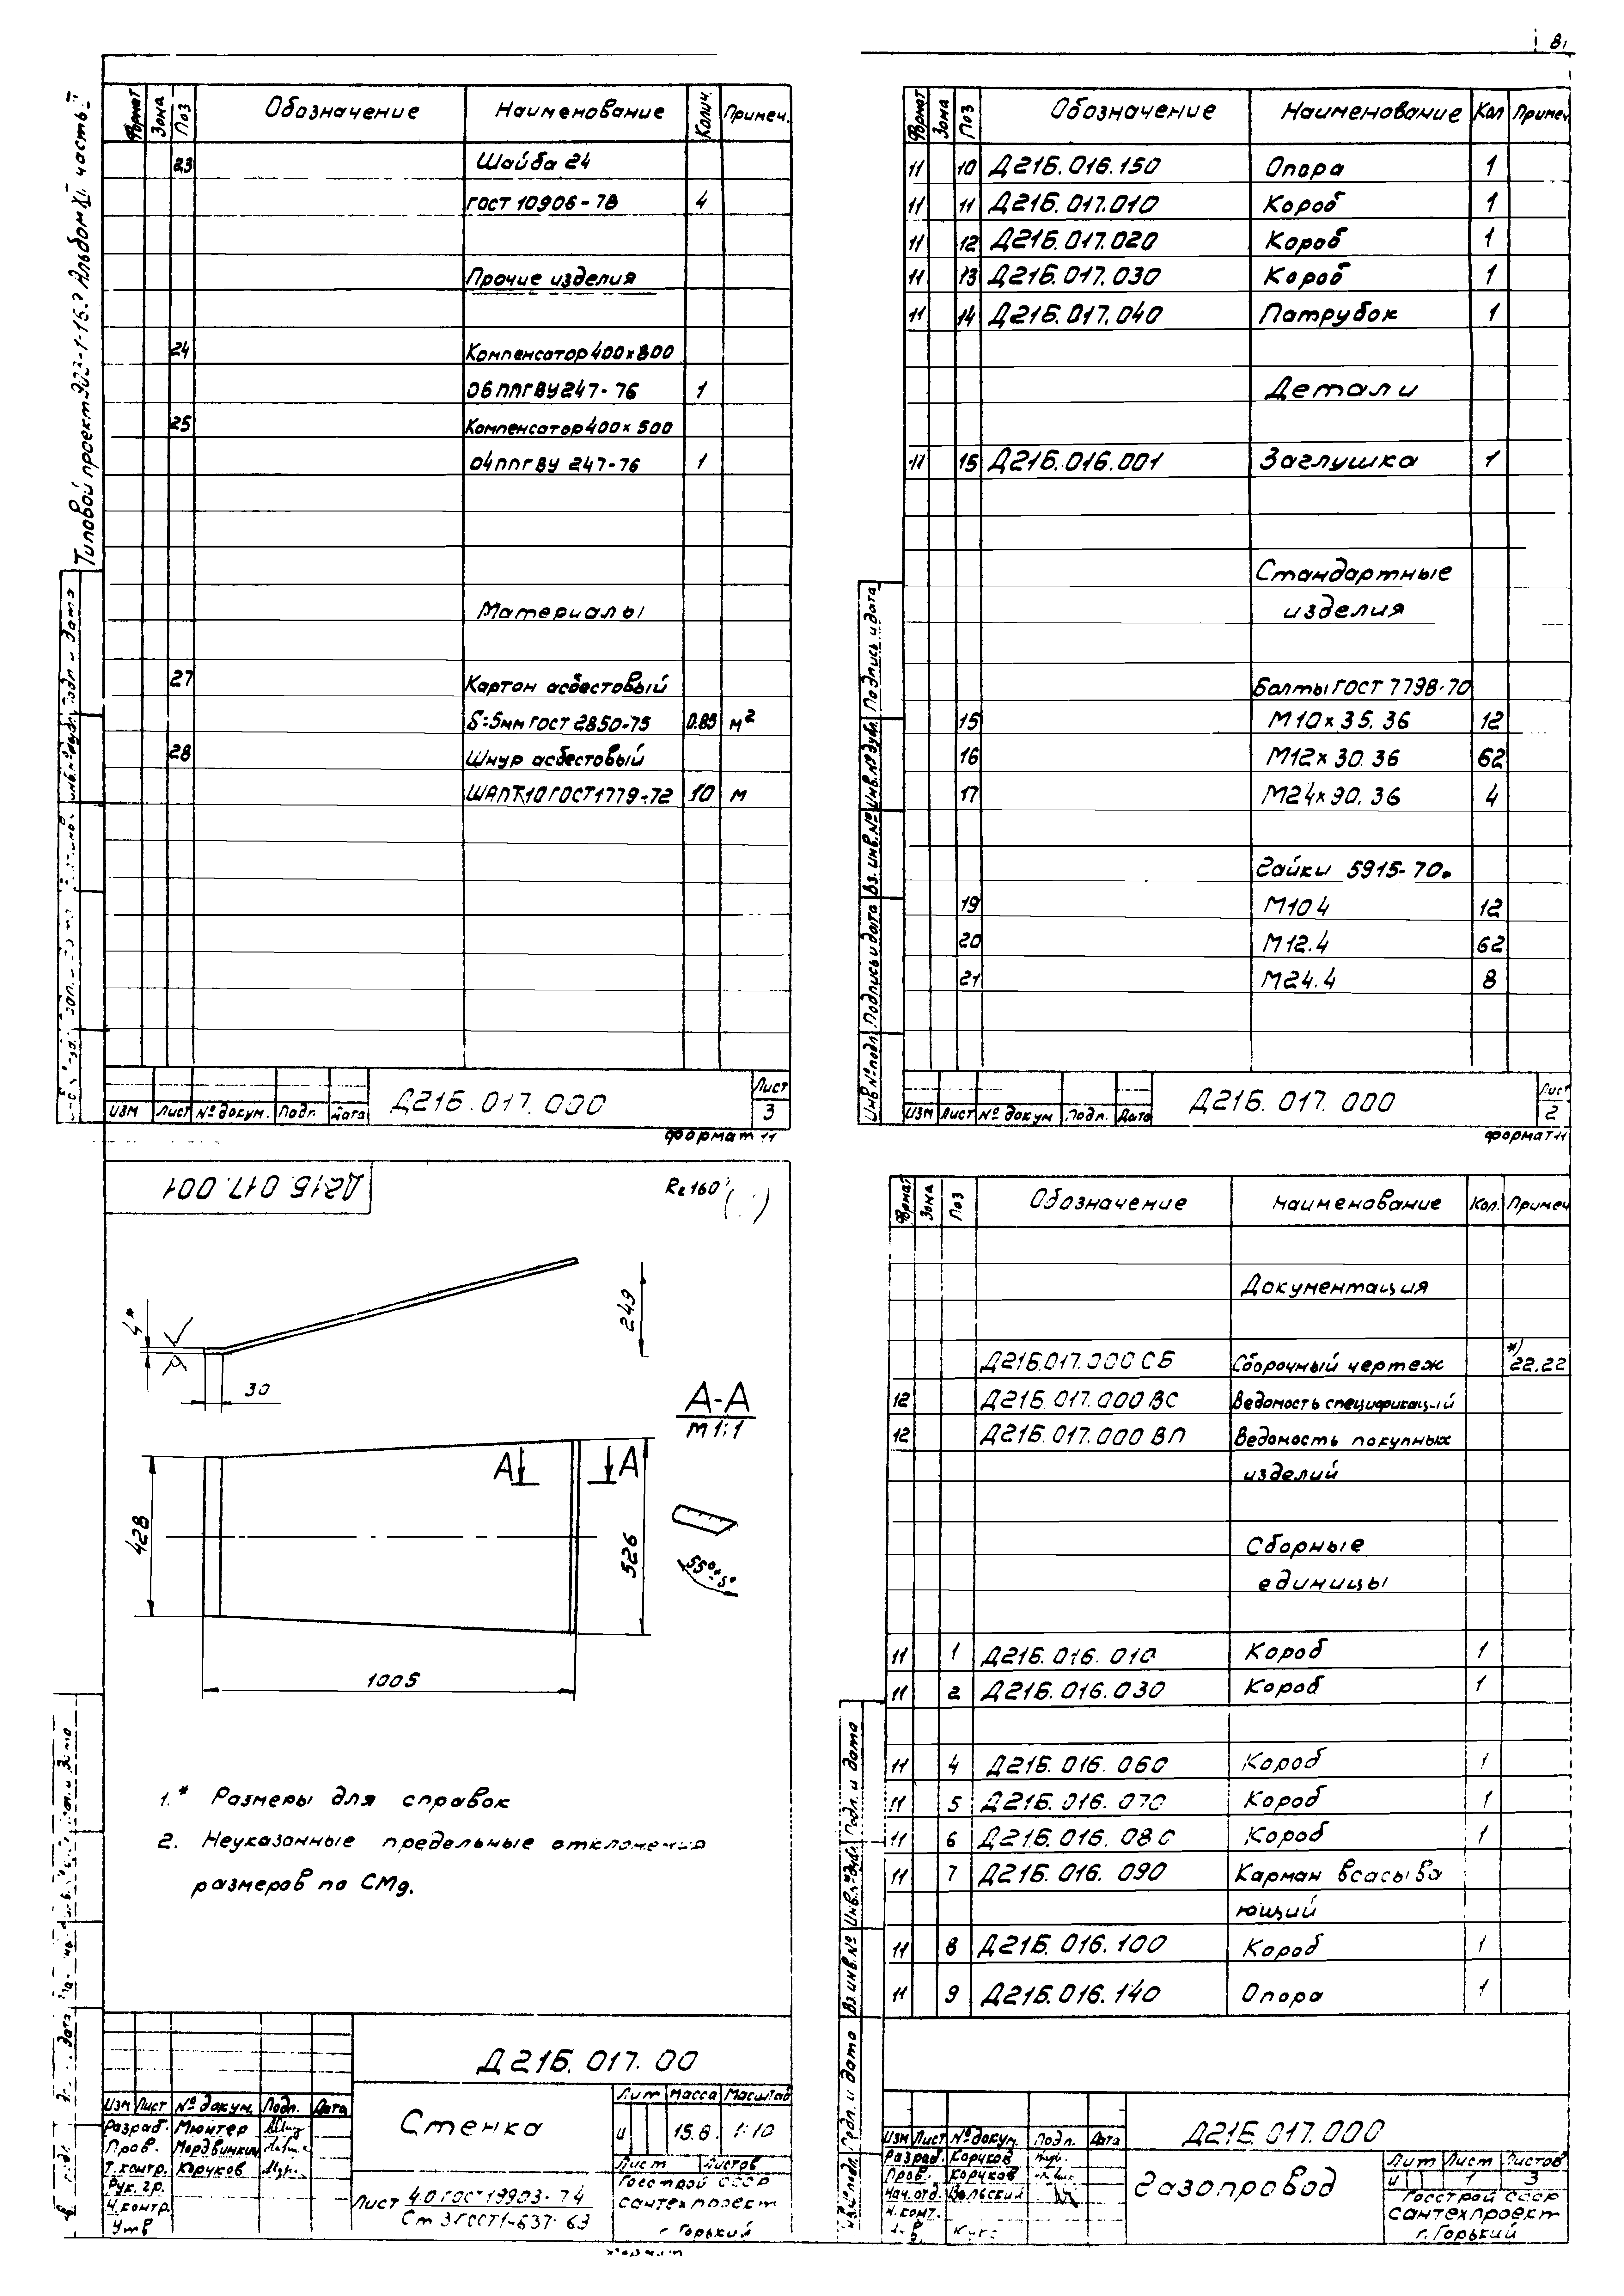 81
Типовой проект 903-1-16.? Альбом XI часть I
Формат Зона Поз Обозначение Наименование Колич. Примеч.
23 Шайба 24
ГОСТ 10906-78 4
Прочие изделия
24 Компенсатор 400×800
06 ППГВУ 247-76 1
25 Компенсатор 400×500
04 ППГВУ 247-76 1
Материалы
27 Картон асбестовый
S=5мм ГОСТ 2850-75 0.85 м²
28 Шнур асбестовый
ШАПТ-10 ГОСТ 1779-72 10 м
Изм Лист № докум. Подп. Дата
Д21Б.017.000
Лист
3
Формат 11
Формат Зона Поз Обозначение Наименование Кол Примеч
11 10 Д21Б.016.150 Опора 1
11 11 Д21Б.017.010 Короб 1
11 12 Д21Б.017.020 Короб 1
11 13 Д21Б.017.030 Короб 1
11 14 Д21Б.017.040 Патрубок 1
Детали
11 15 Д21Б.016.001 Заглушка 1
Стандартные
изделия
Болты ГОСТ 7798-70
15 М10×35.36 12
16 М12×30.36 62
17 М24×90.36 4
Гайки 5915-70.
19 М10 4 12
20 М12.4 62
21 М24.4 8
Инв.№ подл. Подпись и дата Вз. инв.№ Инв.№ дубл. Подпись и дата
Изм Лист № докум Подп. Дата
Д21Б.017.000
Лист
2
Формат 11
Д21Б.017.001
Rz160
4*
30
249
А-А
М 1:1
А А
428
526
55°±5°
1005
1.* Размеры для справок
2. Неуказанные предельные отклонения
размеров по СМд.
Д21Б.017.00
Изм Лист № докум. Подп. Дата
Разраб. Мюнтер
Пров. Мордвинкин
Т.контр. Коруков
Рук.гр.
Н.контр.
Утв
Стенка
Лит Масса Масштаб
и 15.6. 1:10
Лист Листов
Лист 4.0 ГОСТ 19903-74
Ст 3 ГОСТ 1-637-63
Госстрой СССР
сантехпроект
г. Горький
Формат
Формат Зона Поз Обозначение Наименование Кол. Примеч
Документация
Д21Б.017.000 СБ Сборочный чертеж *) 22.22
12 Д21Б.017.000 ВС Ведомость спецификаций
12 Д21Б.017.000 ВП Ведомость покупных
изделий
Сборные
единицы
11 1 Д21Б.016.010 Короб 1
11 2 Д21Б.016.030 Короб 1
11 4 Д21Б.016.060 Короб 1
11 5 Д21Б.016.070 Короб 1
11 6 Д21Б.016.080 Короб 1
11 7 Д21Б.016.090 Карман всасыва
ющий
11 8 Д21Б.016.100 Короб 1
11 9 Д21Б.016.140 Опора 1
Подп. и дата Вз. инв.№ Инв.№ дубл. Подп. и дата
Изм Лист № докум. Подп. Дата
Разраб Коруков
Пров. Коруков
Нач.отд. Вольский
Н.конт.
Д21Б.017.000
Газопровод
Лит Лист Листов
и 1 3
Госстрой СССР
сантехпроект
г. Горький